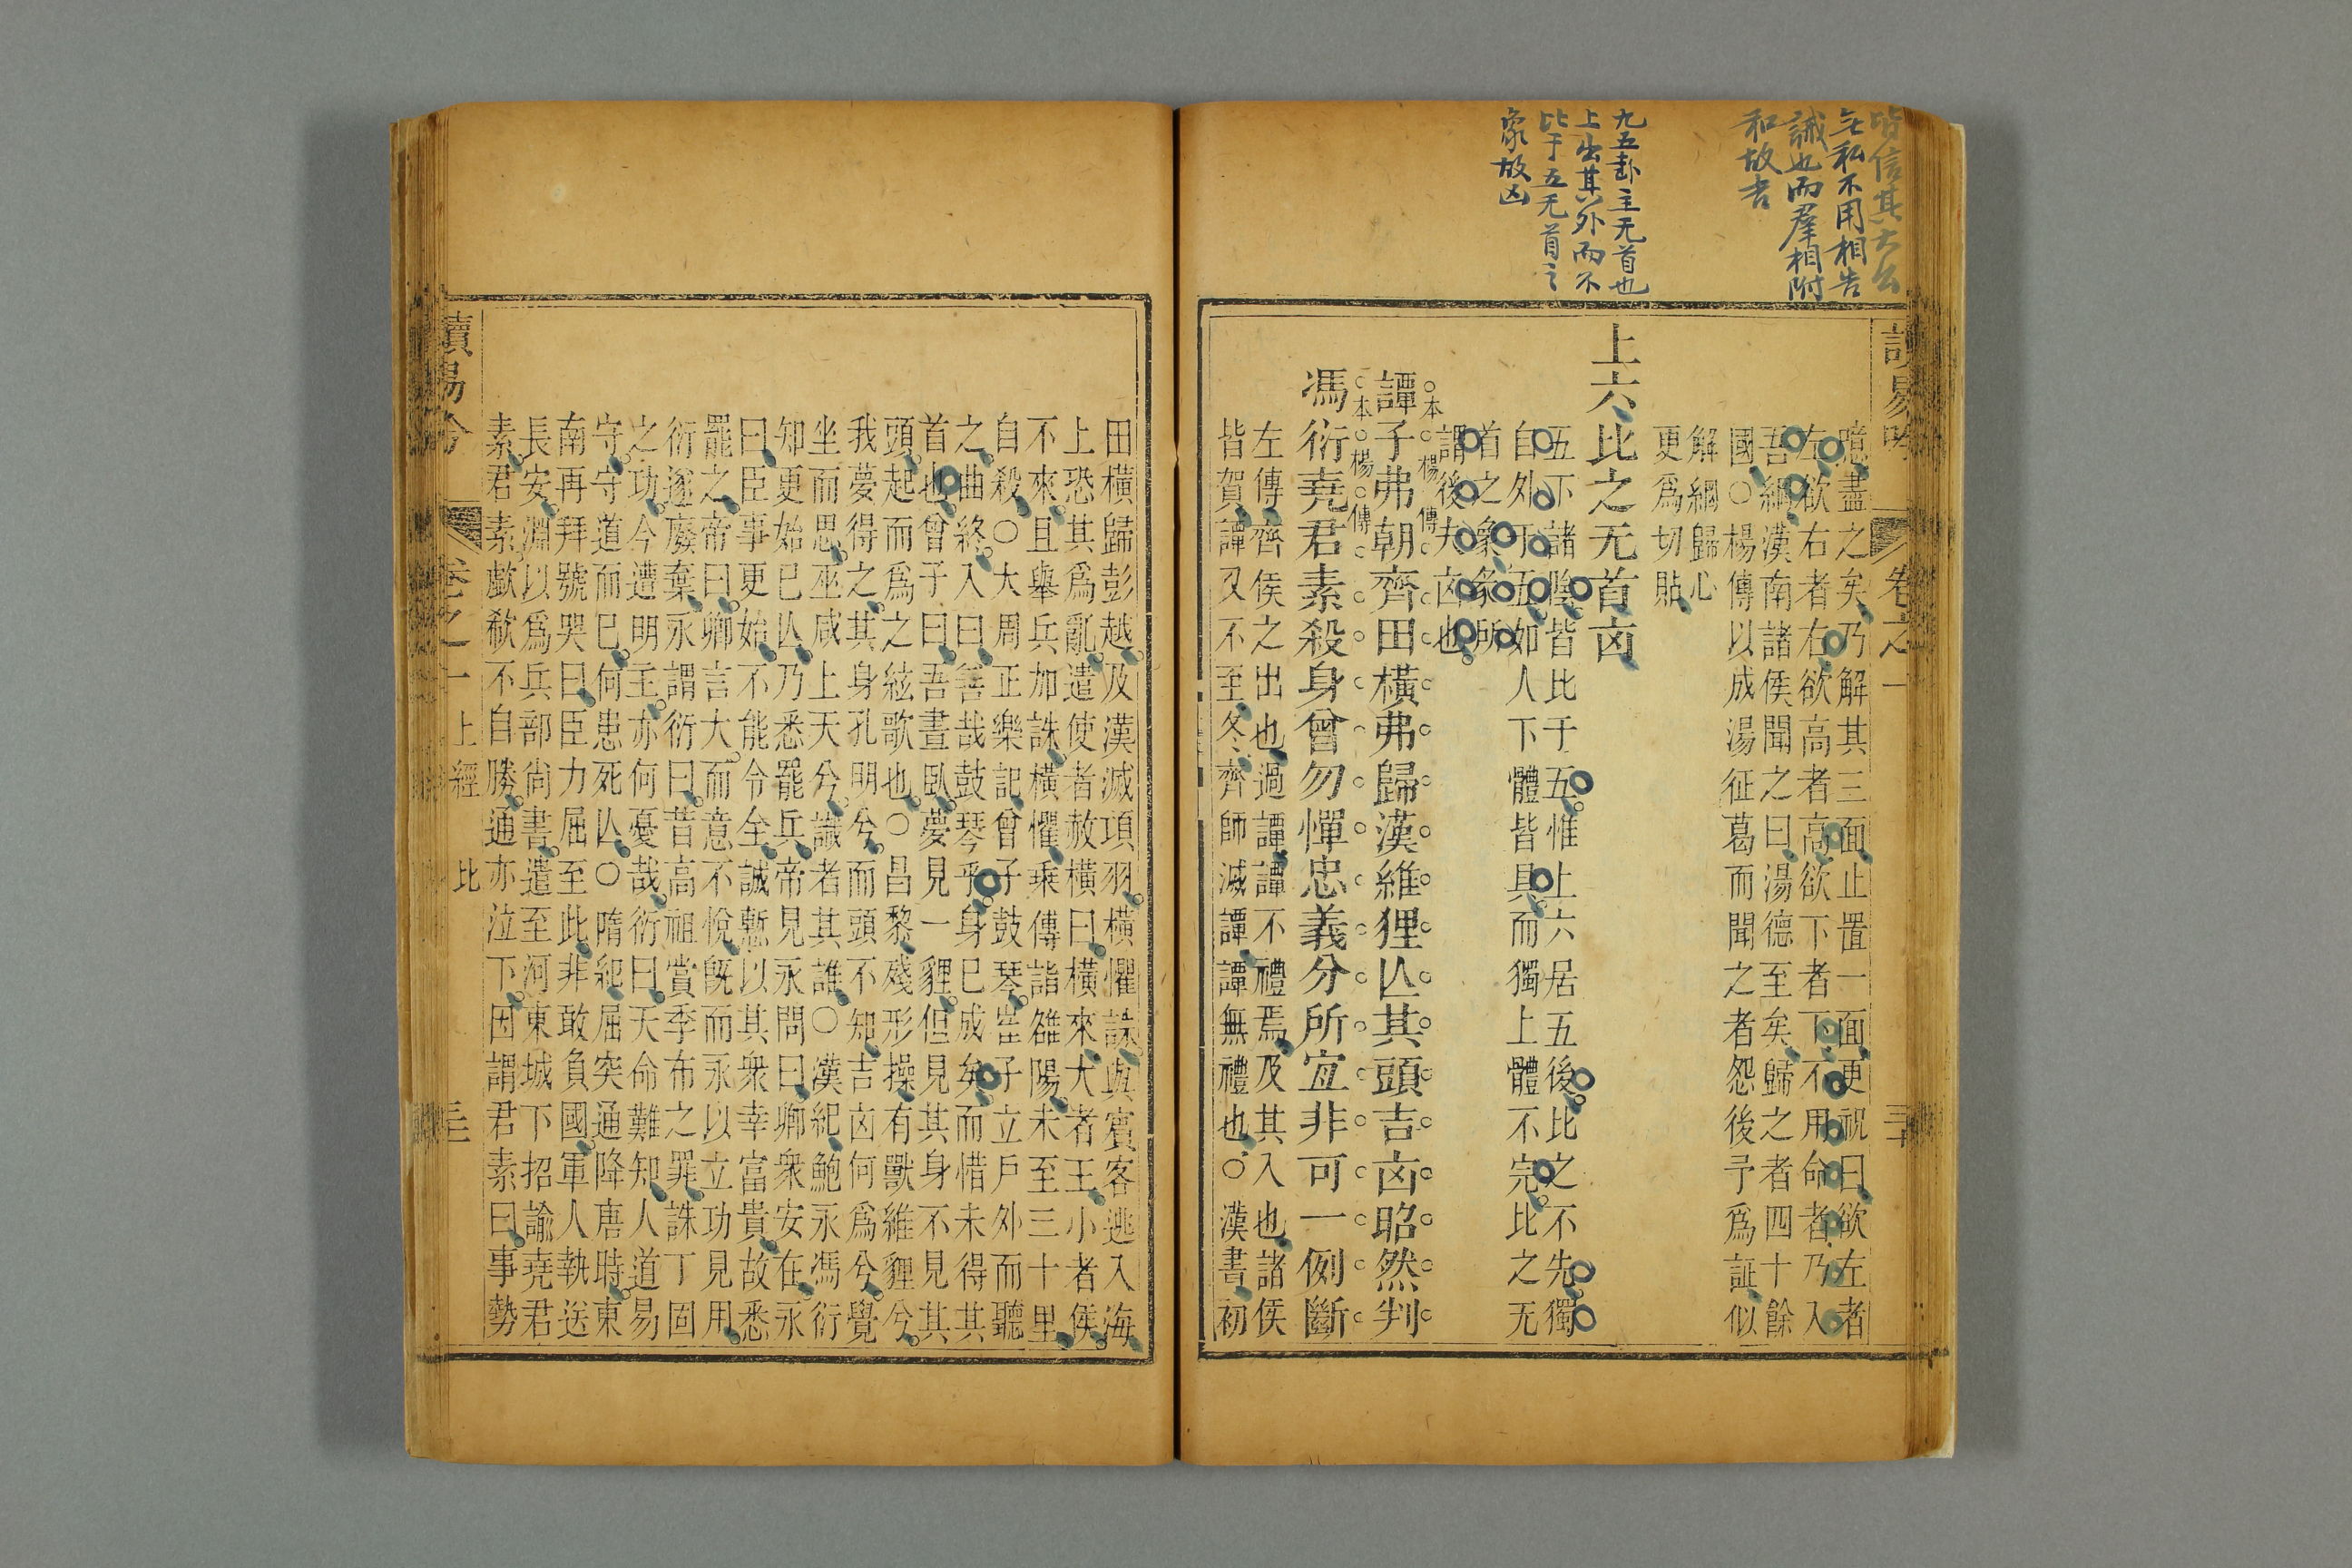 皆信其大公
无私不用相告
誡也而羣相附
和故吉
九五卦主无首也
上出其外而不
比于五无首之
象故凶
讀易吟
卷之一
憶盡之矣乃解其三面止置一面更祝曰欲左者
左欲右者右欲高者高欲下者下不用命者乃入
吾綱漢南諸侯聞之曰湯德至矣歸之者四十餘
國○楊傳以成湯征葛而聞之者怨後予爲証似
解綱歸心
更爲切貼
上六比之无首㐫
五下諸陰皆比于五惟上六居五後比之不先獨
自外于五如人下體皆具而獨上體不完比之无
首之象象所
謂後夫㐫也
○本○楊○傳
譚子弗朝齊田橫弗歸漢維狸亾其頭吉㐫昭然判
○本○楊○傳
馮衍堯君素殺身曾勿憚忠義分所宜非可一例斷
左傳齊侯之出也過譚譚不禮焉及其入也諸侯
皆賀譚又不至冬齊師滅譚譚無禮也○漢書初
田橫歸彭越及漢滅項羽橫懼誅與賓客逃入海
上恐其爲亂遣使者赦橫曰橫來大者王小者侯
不來且舉兵加誅橫懼乘傳詣雒陽未至三十里
自殺○大周正樂記曾子鼓琴崔子立戶外而聽
之曲終入曰善哉鼓琴乎身已成矣而惜未得其
首也曾子曰吾晝臥夢見一貍但見其身不見其
頭起而爲之絃歌也○昌黎殘形操有獸維貍兮
我夢得之其身孔明兮而頭不知吉㐫何爲兮覺
坐而思巫咸上天兮識者其誰○漢紀鮑永馮衍
知更始已亾乃悉罷兵帝見永問曰卿衆安在永
曰臣事更始不能令全誠慙以其衆幸富貴故悉
罷之帝曰卿言大而意不悅旣而永以立功見用
衍遂廢棄永謂衍曰昔高祖賞季布之罪誅丁固
之功今遭明主亦何憂哉衍曰天命難知人道易
守守道而已何患死亾○隋紀屈突通降唐時東
南再拜號哭曰臣力屈至此非敢負國軍人執送
長安淵以爲兵部尚書遣至河東城下招諭堯君
素君素歔欷不自勝通亦泣下因謂君素曰事勢
讀易吟
卷之一 上經 比